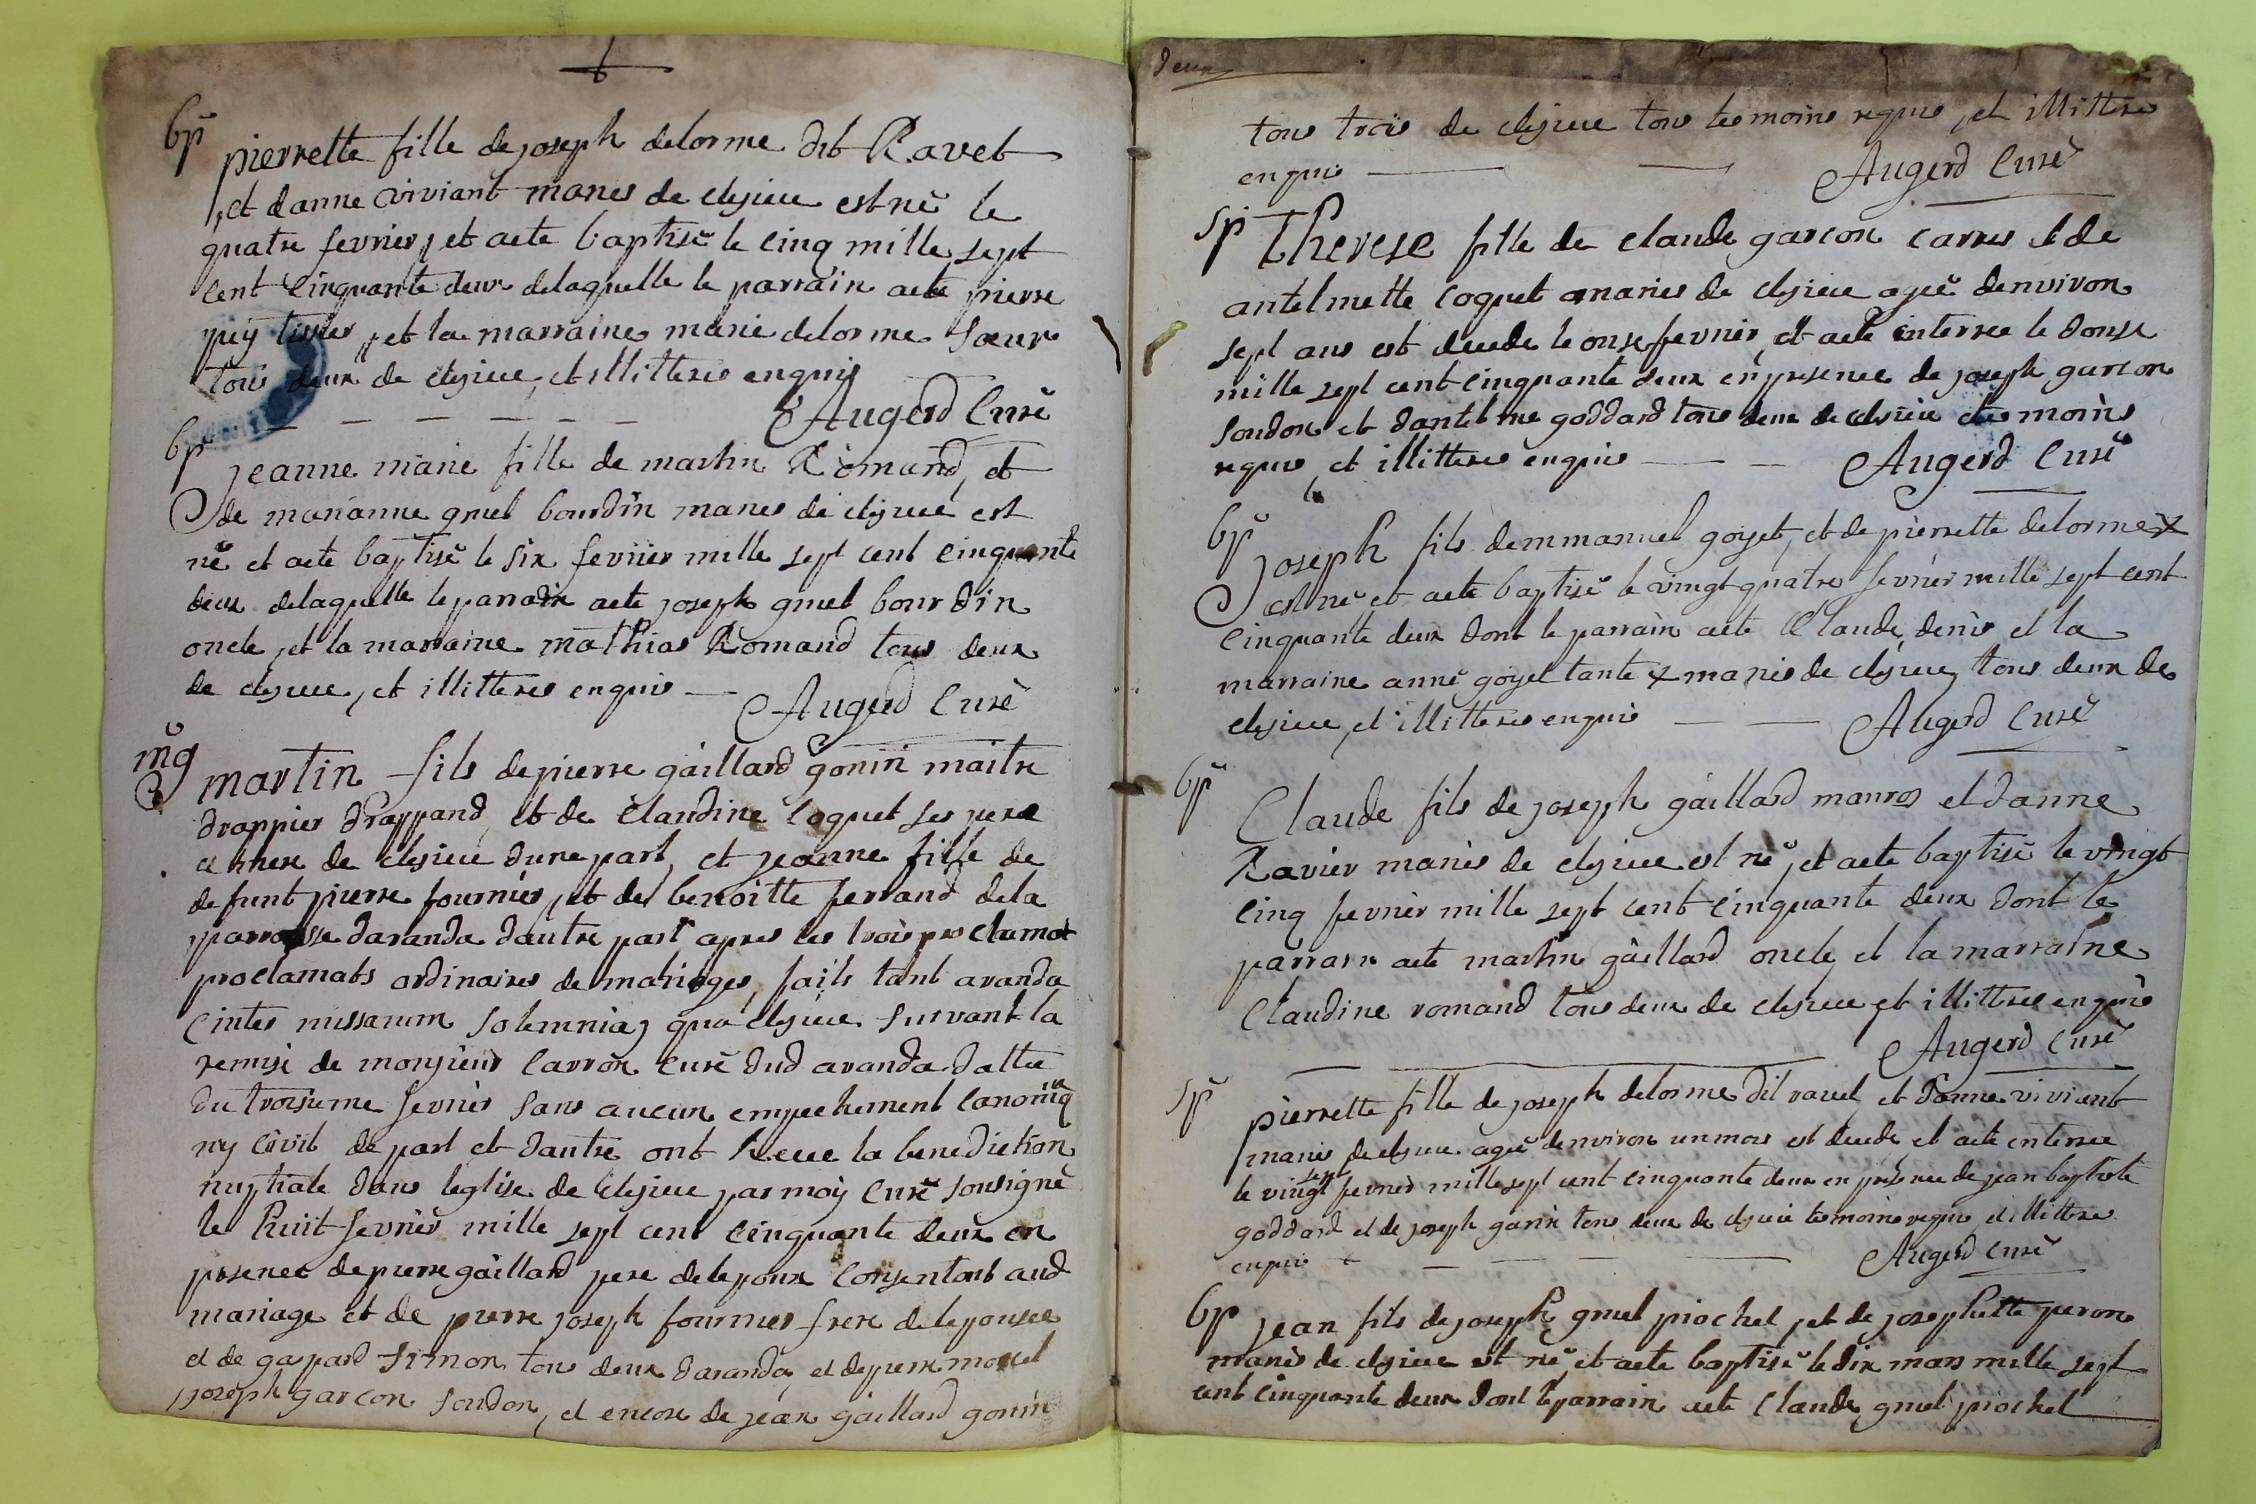 bp
pierrette fille de joseph delorme dit Ravet
et danne viviant maries de clesieue est né le
quatre fevrier, et aeté baptisé le cinq mille sept
cent cinquante deux delaquelle le parrain aeté pierre
pey tissier, et la marraine marie delorme soeur
tous deux de clesieue, et illitteres enquis
Augerd Curé
bp
jeanne marie fille de martin Romand, et
de marianne gruel bourdin maries de clesieue est
né et aeté baptisé le six fevrier mille sept cent cinquante
deux delaquelle le parrain aeté joseph gruel bourdin
oncle, et la marraine mathias Romand tous deux
de clesieue, et illitteres enquis
Augerd Curé
mg
martin fils de pierre gaillard gonin maitre
drappier drappand, et de Claudine Coquet ses pere
et mere de clesieue dune part, et jeanne fille de
defunt pierre fournier, et de benoitte ferrand dela
parroisse daranda dautre part apres les trois proclamat
proclamats ordinaires de mariages, faits tant aranda
(inter missarum solemnia) qua clesieue suivant la
remise de monsieur Carron Curé dud aranda datté
du troisieme fevrier sans aucun empechement canoniq
ny civil de part et dautre ont Receue la benediction
nuptiale dans leglise de clesieue par moy Curé sousigné
le huit fevrier mille sept cent cinquante deux en
presence de pierre gaillard pere de lepoux consentant aud
mariage et de pierre joseph fournier frere de lepousee
et de gaspard simon tous deux daranda, et de pierre
joseph garcon soudon, et encore de jean gaillard gonin
deux
tous trois de clesieue tous temoins requis, et illitteres
enquis
Augerd Curé
sp
Therese fille de claude garcon carres et de
antelmette Coquet maries de clesieue ageé denviron
sept ans est decede le onse fevrier, et aeté enterree le donse
mille sept cent cinquante deux en presence de joseph garcon
soudon et dantelme goddard tous deux de clesieue temoins
requis, et illitteres enquis
Augerd Curé
bp
joseph fils demmanuel goyet, et de pierrette delorme x
est né et aeté baptisé le vingt quatre fevrier mille sept cent
cinquante deux dont le parrain aeté Claude denis et la
marraine anne goyet tante x maries de clesieue tous deux de
clesieue, et illitteres enquis
Augerd Curé
bp
Claude fils de joseph gaillard manros et danne
Ravier maries de clesieue est né, et aeté baptisé le vingt
cinq fevrier mille sept cent cinquante deux dont le
parrain aeté martin gaillard oncle et la marraine
Claudine romand tous deux de clesieue et illitteres enquis
Augerd Curé
sp
pierrette fille de joseph delorme dit ravet et danne viviant
maries de clesieue ageé denviron un mois est decede, et aeté enterree
sept
le vingt fevrier mille sept cent cinquante deux en presence de jean baptiste
goddard et de joseph garin tous deux de clesieue temoins requis, et illitteres
enquis
Augerd Curé
bp
jean fils de joseph gruel piochet, et de josephette peron
maries de clesieue est né et aeté baptisé le dix mars mille sept
cent cinquante deux dont le parrain aeté Claude gruel piochet